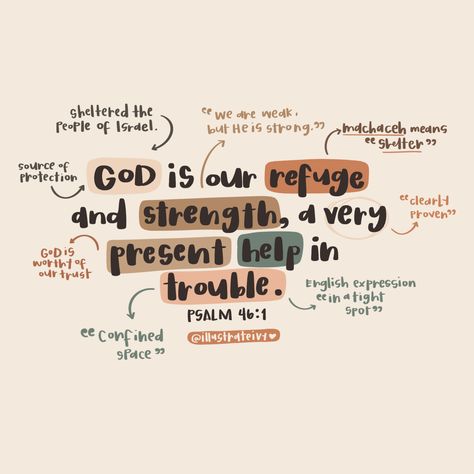 sheltered the
people of Israel.
“we are weak,
but He is strong.”
machaceh means
“shelter”
source of
protection
GOD is our refuge
and strength, a very
present help in
trouble.
PSALM 46:1
@illustrateivy
“clearly
proven”
GOD is
worthy of
our trust
“Confined
space”
English expression
“in a tight
spot”